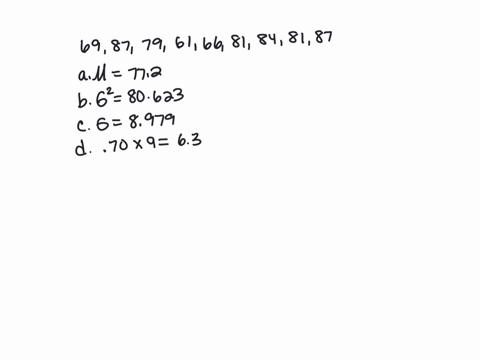 69, 87, 79, 61, 66, 81, 84, 81, 87
a. μ = 77.2
b. σ² = 80.623
c. σ = 8.979
d. .70 × 9 = 6.3